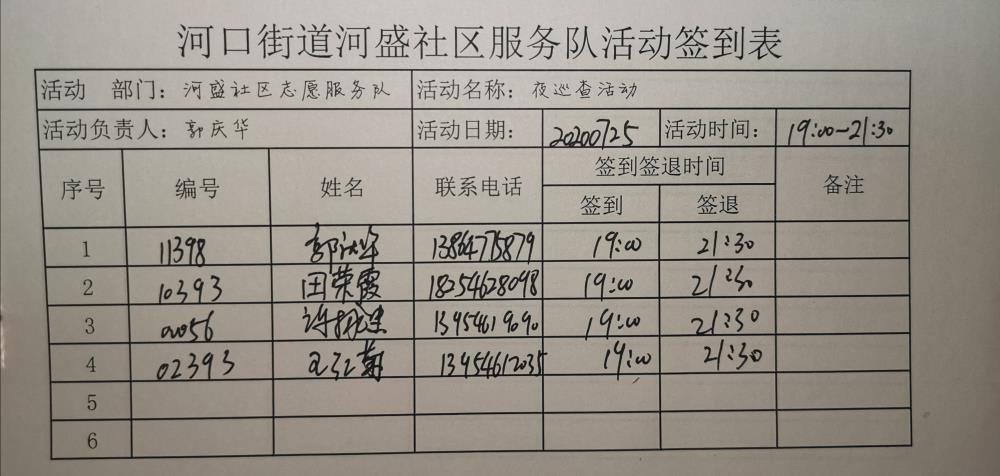 河口街道河盛社区服务队活动签到表
活动 部门：河盛社区志愿服务队 活动名称：夜巡查活动
活动负责人：郭庆华 活动日期： 20200725 活动时间： 19:00-21:30
序号 编号 姓名 联系电话 签到签退时间 备注
签到 签退
1 11398 郭庆华 13864775879 19:00 21:30
2 10393 田荣霞 18254628098 19:00 21:30
3 13954619090 19:00 21:30
4 02393 13954612035 19:00 21:30
5
6